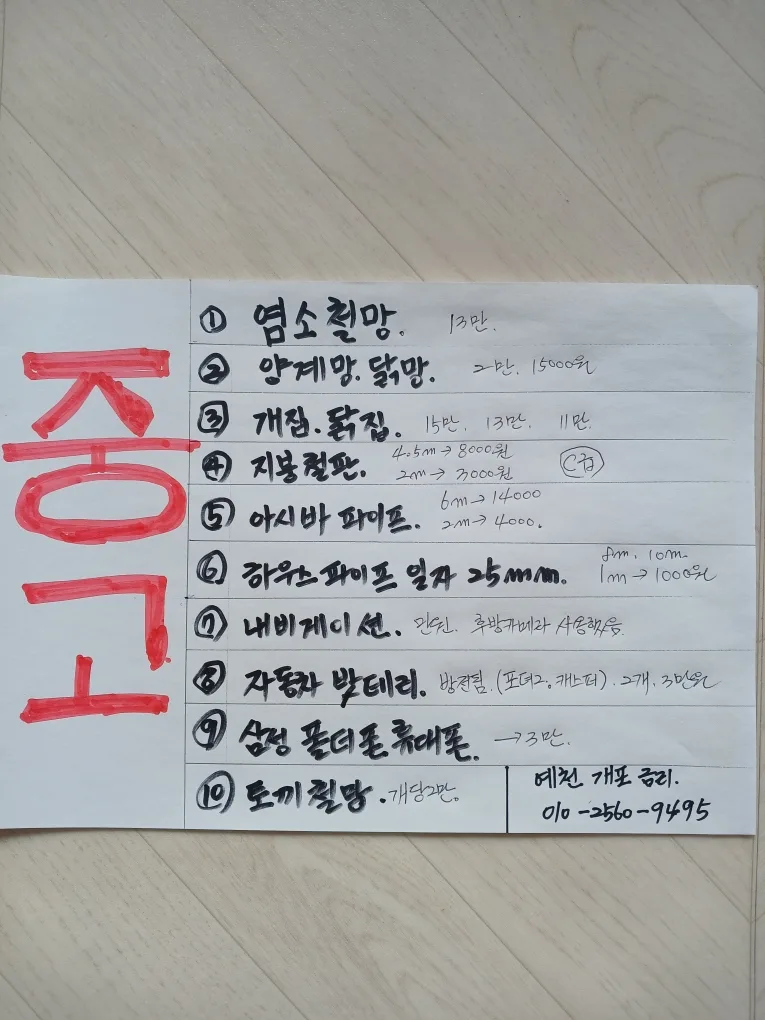 중고
① 염소철망. 13만.
② 양계망. 닭망. 2만. 15000원
③ 개집. 닭집. 15만. 13만. 11만.
④ 지붕철판. 4.5m→8000원
2m→3000원 C급
⑤ 아시바 파이프. 6m→14000
2m→4000.
⑥ 하우스파이프 일자 25mm. 8m. 10m.
1m→1000원
⑦ 내비게이션. 만원. 후방카메라 사용했음.
⑧ 자동차 밧테리. 방전됨. (포터2, 캐스퍼). 2개. 3만원
⑨ 삼성 폴더폰 휴대폰. →3만.
⑩ 토끼철망. 개당2만.
예천 개포 금리.
010-2560-9495